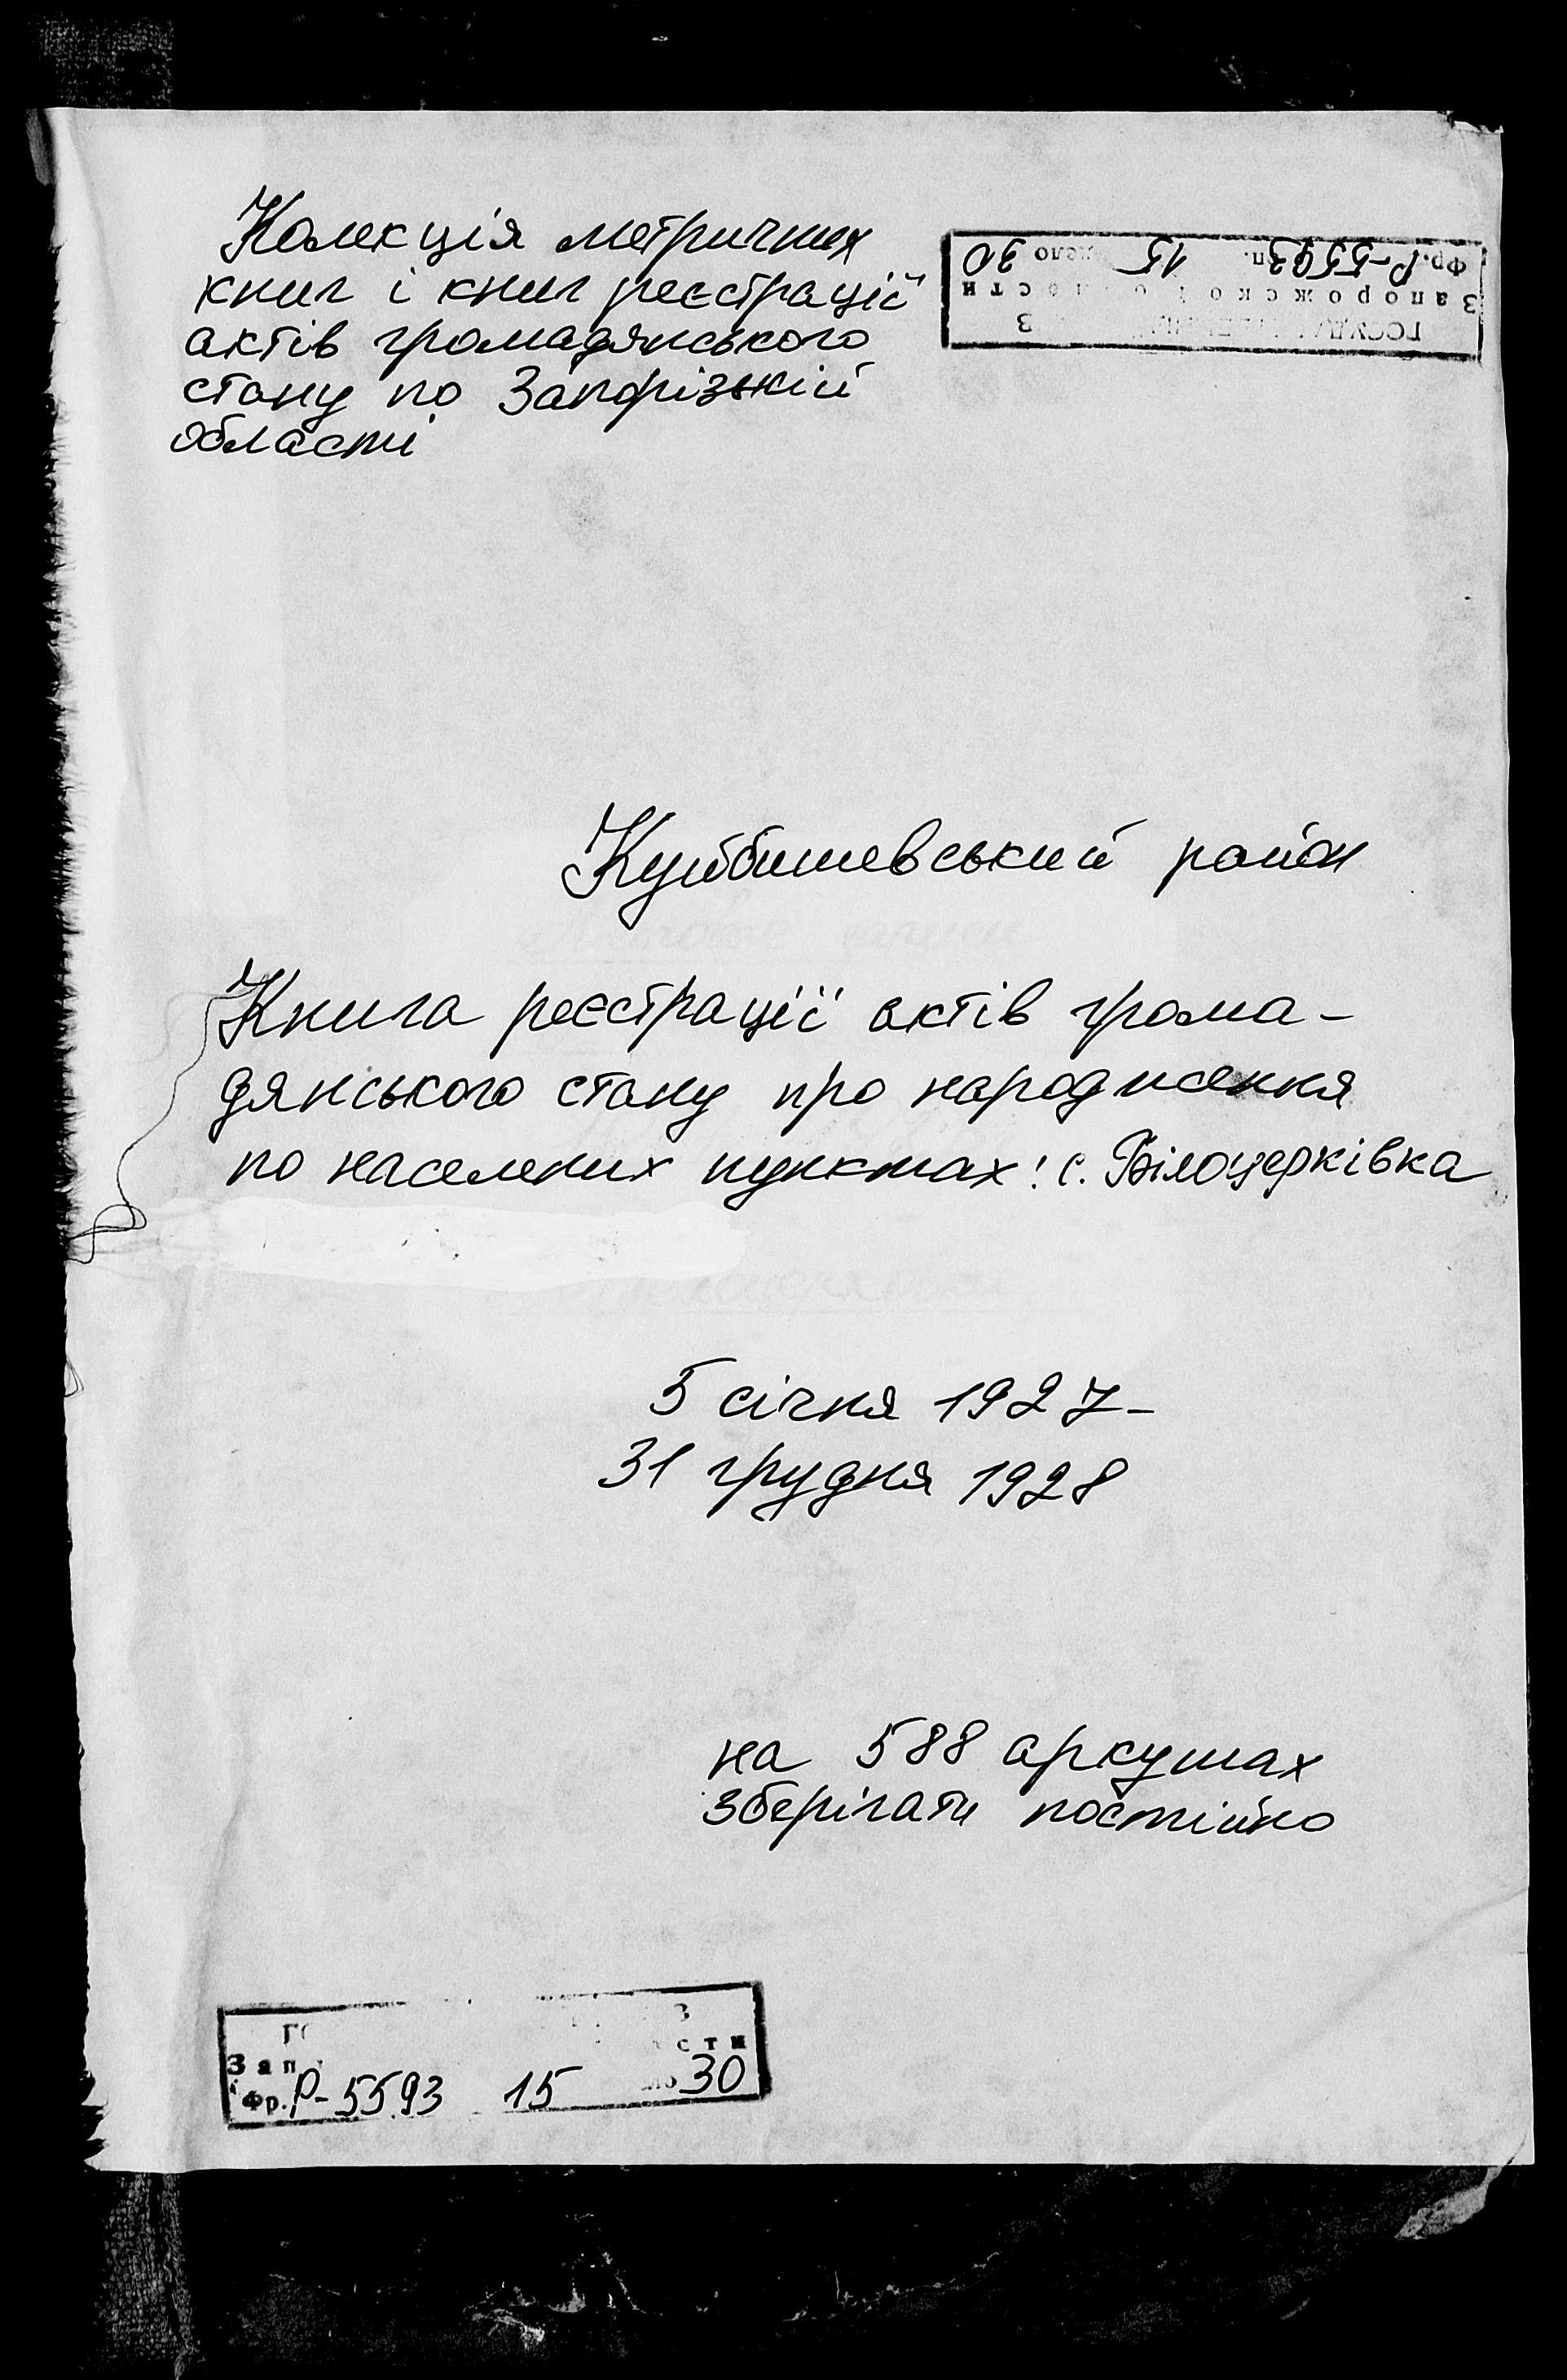 Колекція метричних
книг і книг реєстрації
актів громадянського
стану по Запорізькій
області
Фр. Р-5593 оп. 15 дело 30
Куйбишевський район
Книга реєстрації актів грома-
дянського стану про народження
по населених пунктах: с. Білоцерківка
5 січня 1927-
31 грудня 1928
на 588 аркушах
зберігати постійно
Фр. Р-5593 15 30